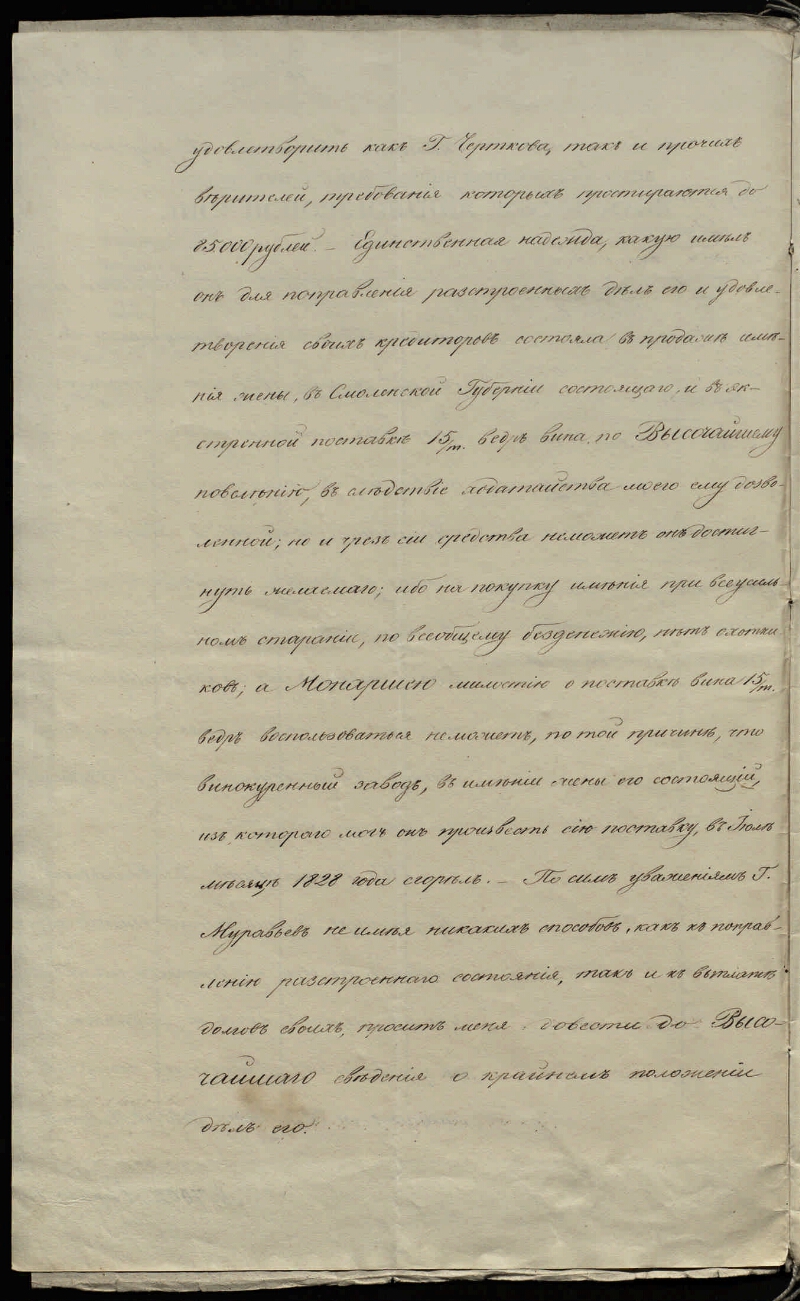 удовлетворить какъ Г. Черткова, такъ и прочихъ
вѣрителей, требованія которыхъ простираются до
85000 рублей. – Единственная надежда, какую имѣлъ
онъ для поправленія разстроенныхъ дѣлъ его и удовле-
творенія своихъ кредиторовъ состояла въ продажѣ имѣ-
нія жены, въ Смоленской Губерніи состоящаго, и въ эк-
стренной поставкѣ 15/т. ведръ вина, по Высочайшему
повелѣнію, въ слѣдствіе ходатайства моего ему дозво-
ленной; но и чрезъ сіи средства неможетъ онъ достиг-
нуть желаемаго; ибо на покупку имѣнія при всеусиль-
номъ стараніи, по всеобщему безденежію, нѣтъ охотни-
ковъ; а Монаршею милостію о поставкѣ вина 15/т.
ведръ воспользоваться неможетъ, по той причинѣ, что
винокуренный заводъ, въ имѣніи жены его состоящій,
изъ котораго могъ онъ произвесть сію поставку, въ Іюлѣ
мѣсяцѣ 1828 года сгорѣлъ. – По симъ уваженіямъ Г.
Муравьевъ не имѣя никакихъ способовъ, какъ къ поправ-
ленію разстроеннаго состоянія, такъ и къ выплатѣ
долговъ своихъ, проситъ меня довести до Высо-
чайшаго свѣденія о крайнемъ положеніи
дѣлъ его.